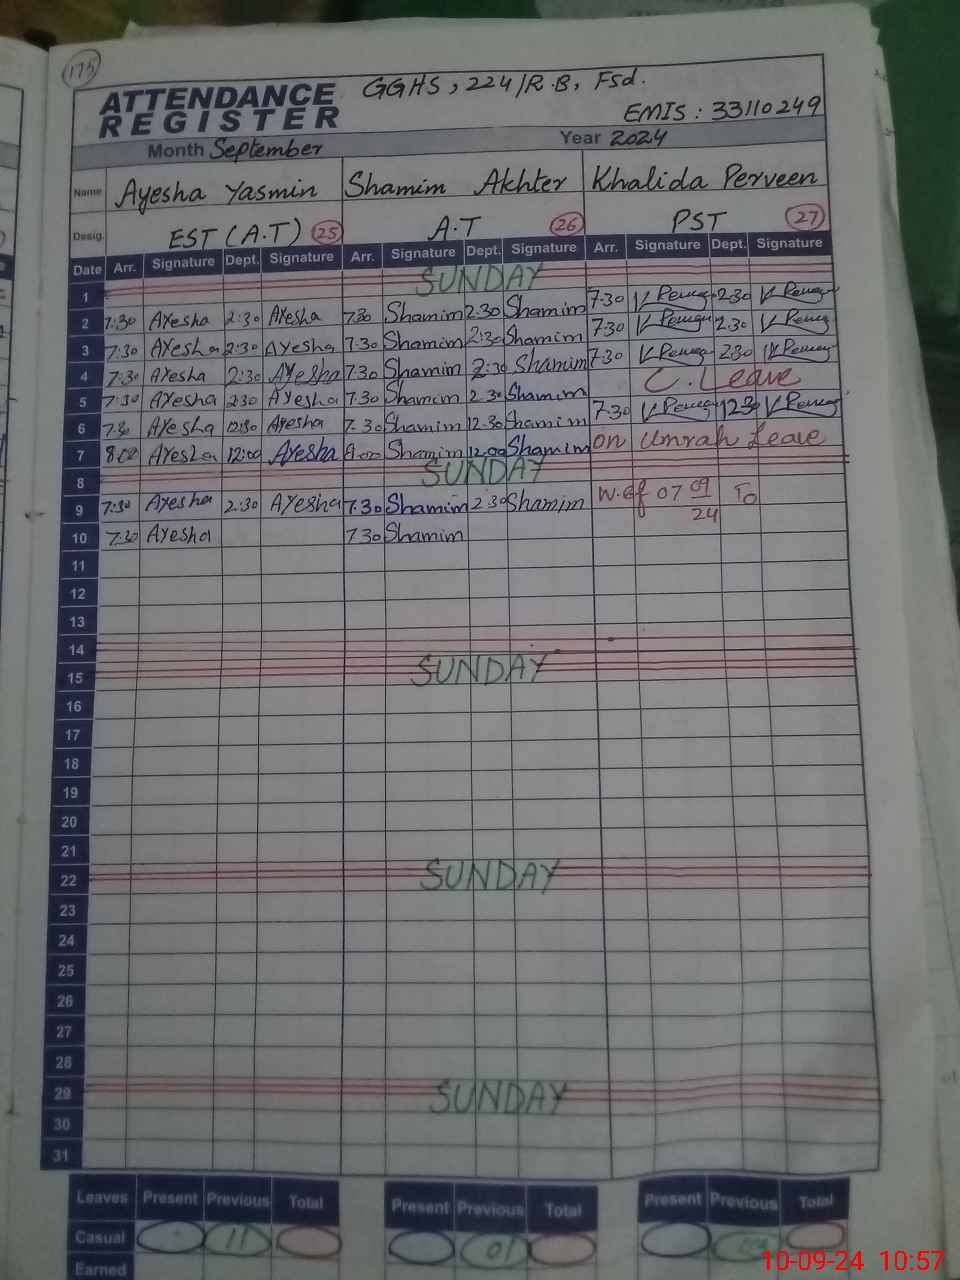 175
ATTENDANCE REGISTER
GGHS, 224/R.B, Fsd.
EMIS: 33110249
Month September Year 2024
Name Ayesha Yasmin Shamim Akhter Khalida Perveen
Desig. EST (A.T) 25 A.T 26 PST 27
Date Arr. Signature Dept. Signature Arr. Signature Dept. Signature Arr. Signature Dept. Signature
1 SUNDAY
2 7:30 Ayesha 2:30 Ayesha 7.30 Shamim 2.30 Shamim 7-30 2.30
3 7:30 Ayesha 2:30 Ayesha 7.30 Shamim 2:30 Shamim 7-30 2.30
4 7:30 Ayesha 2:30 Ayesha 7.30 Shamim 2:30 Shamim 7-30 2.30
5 7:30 Ayesha 2:30 Ayesha 7.30 Shamim 2.30 Shamim C. Leave
6 7:30 Ayesha 12:30 Ayesha 7.30 Shamim 12.30 Shamim 7-30 12-30
7 8:00 Ayesha 12:00 Ayesha 8:00 Shamim 12.00 Shamim on Umrah Leave
8 SUNDAY
9 7:30 Ayesha 2:30 Ayesha 7.30 Shamim 2.30 Shamim W.ef 07 09 To
24
10 7.30 Ayesha 7.30 Shamim
11
12
13
14
15 SUNDAY
16
17
18
19
20
21
22 SUNDAY
23
24
25
26
27
28
29 SUNDAY
30
31
Leaves Present Previous Total Present Previous Total Present Previous Total
Casual 11 01
Earned
10-09-24 10:57